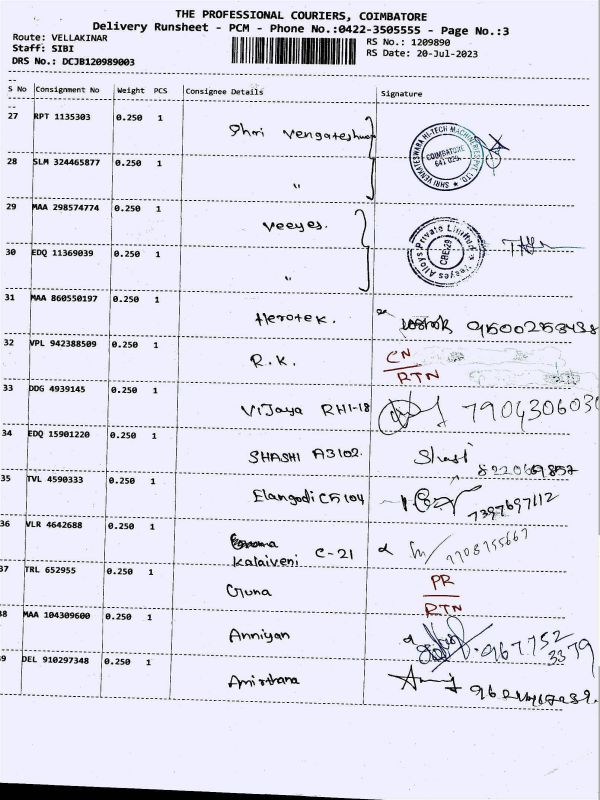 THE PROFESSIONAL COURIERS, COIMBATORE
Delivery Runsheet - PCM - Phone No.:0422-3505555 - Page No.:3
Route: VELLAKINAR
RS No.: 1209890
Staff: SIBI
RS Date: 20-Jul-2023
DRS No.: DCJB120989003
S No Consignment No Weight PCS Consignee Details Signature
27 RPT 1135303 0.250 1 Shri Vengateshwar
SHRI VENGATESWARA HI-TECH MACHINERIES PVT. LTD. COIMBATORE 641 029
28 SLM 324465877 0.250 1 "
29 MAA 298574774 0.250 1 Veeyes.
Veeyes Alloys Private Limited CBE-29
30 EDQ 11369039 0.250 1 "
31 MAA 860550197 0.250 1 Herotek.
32 VPL 942388509 0.250 1 R.K. CN
RTN
33 DDG 4939145 0.250 1 Vijaya RH1-18
34 EDQ 15901220 0.250 1 SHASHI A3102.
35 TVL 4590333 0.250 1 Elangodi CF5104 7397697112
36 VLR 4642688 0.250 1 Kalaiveni C-21 7708755667
37 TRL 652955 0.250 1 Guna PR
RTN
38 MAA 104309600 0.250 1 Anniyan 967752
3379
39 DEL 910297348 0.250 1 Amirthana